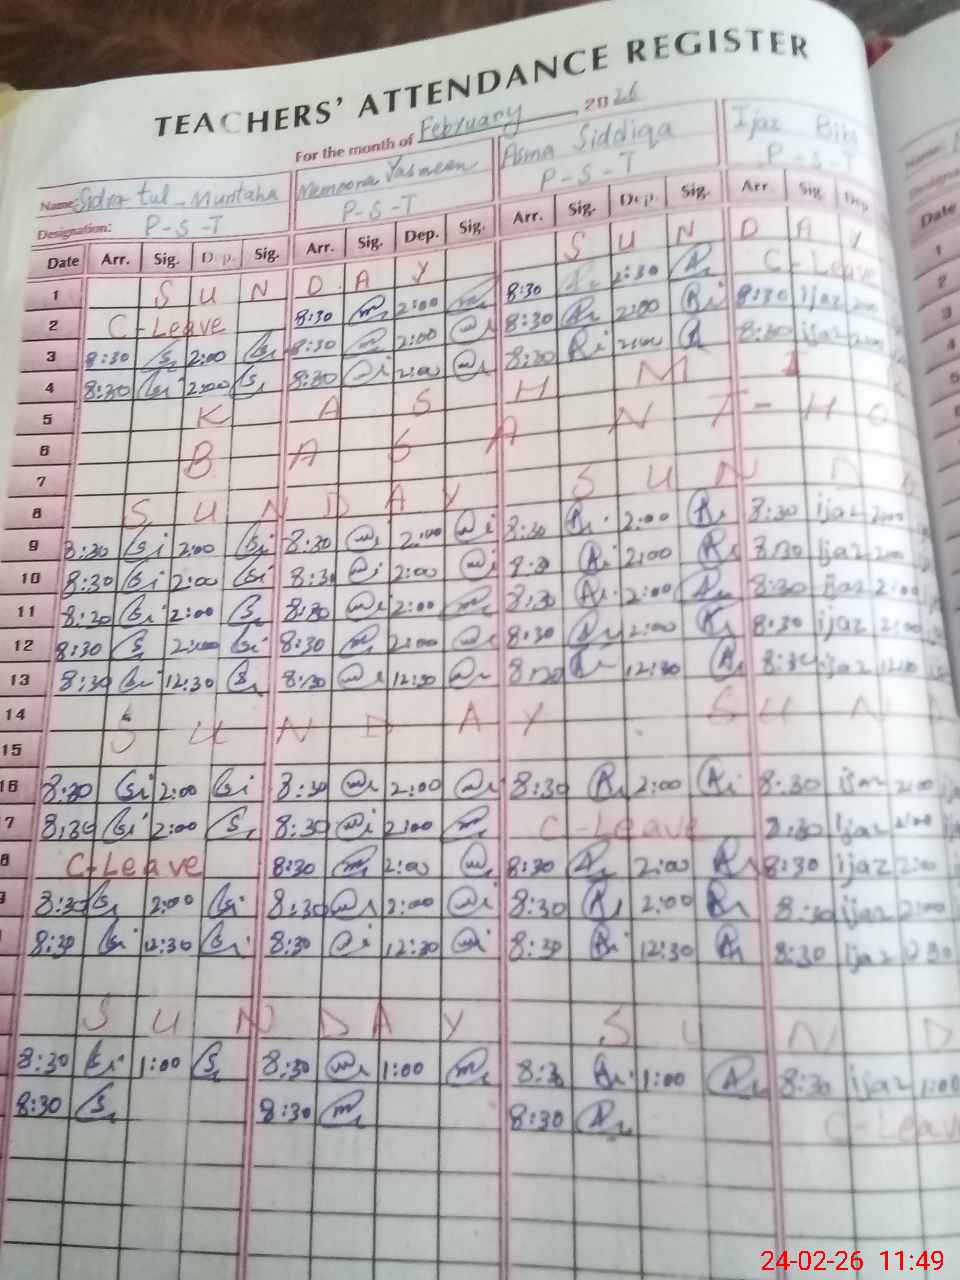 TEACHERS' ATTENDANCE REGISTER
For the month of February 2026
Name: Sidra tul Muntaha Memoona Yasmeen Asma Siddiqa Ijaz Bibi
Designation: P-S-T P-S-T P-S-T P-S-T
Date Arr. Sig. Dep. Sig. Arr. Sig. Dep. Sig. Arr. Sig. Dep. Sig. Arr. Sig. Dep.
1 S U N D A Y S U N D A Y
2 C-Leave 8:30 2:00 8:30 2:30 C-Leave
3 8:30 2:00 8:30 2:00 8:30 2:00 8:30 ijaz 2:00
4 8:30 2:00 8:30 2:00 8:30 2:00 8:30 ijaz 2:00
5 K A S H M I R
6 B A S A N T - H O
7
8 S U N D A Y S U N D A
9 8:30 2:00 8:30 2:00 8:30 2:00 8:30 ijaz 2:00
10 8:30 2:00 8:30 2:00 8:30 2:00 8:30 ijaz 2:00
11 8:30 2:00 8:30 2:00 8:30 2:00 8:30 ijaz 2:00
12 8:30 2:00 8:30 2:00 8:30 2:00 8:30 ijaz 2:00
13 8:30 12:30 8:30 12:30 8:30 12:30 8:30 ijaz 12:30
14
15 S U N D A Y S U N D
16 8:30 2:00 8:30 2:00 8:30 2:00 8:30 ijaz 2:00
7 8:30 2:00 8:30 2:00 C-Leave 8:30 ijaz 2:00
8 C-Leave 8:30 2:00 8:30 2:00 8:30 ijaz 2:00
8:30 2:00 8:30 2:00 8:30 2:00 8:30 ijaz 2:00
8:30 12:30 8:30 12:30 8:30 12:30 8:30 ijaz 12:30
S U N D A Y S U N D
8:30 1:00 8:30 1:00 8:30 1:00 8:30 ijaz 1:00
8:30 8:30 8:30 C-Leave
Name:
Designation
Date
1
2
3
4
5
6
24-02-26 11:49